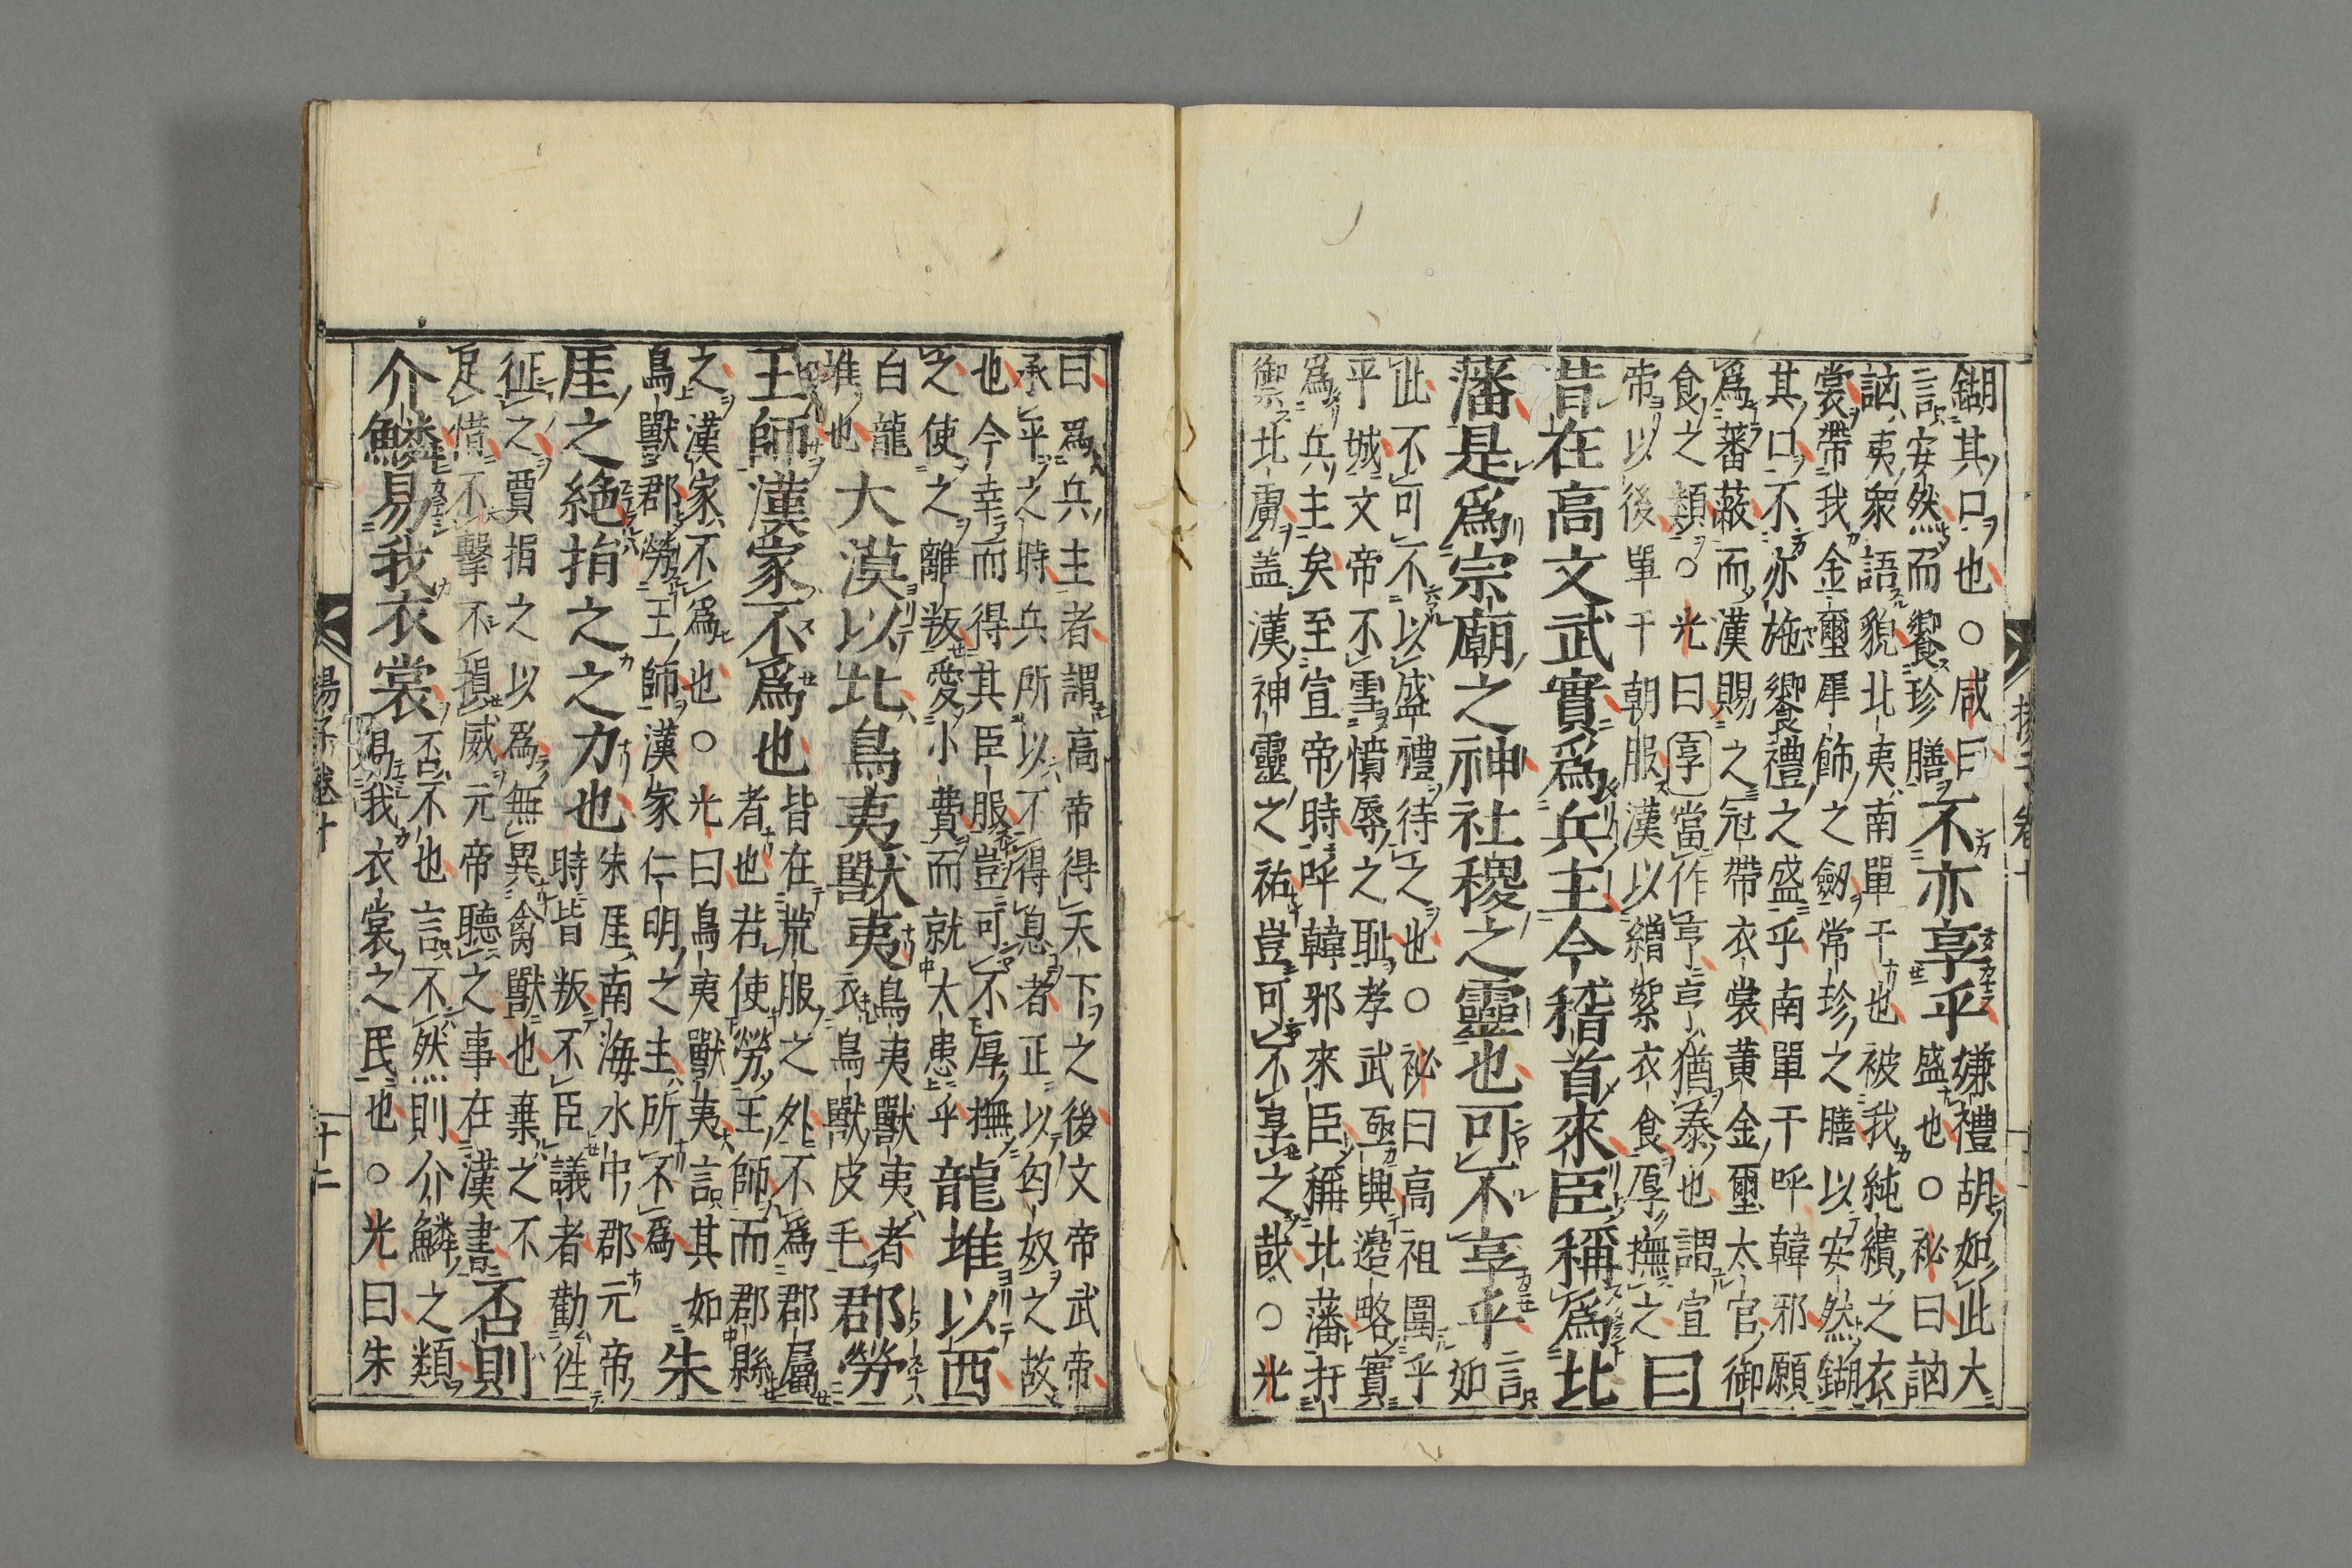 餬其口也○咸曰
言安然而饗珍膳
不亦享乎
嫌禮胡如此大
盛也○祕曰訩
訩夷衆語貌北夷南單于也被我純繢之衣
裳帶我金璽犀飾之劒常珍之膳以安然餬
其口不亦施饗禮之盛乎南單于呼韓邪願
爲蕃蔽而漢賜之冠帶衣裳黄金璽太官御
食之類○光曰享當作亨亨猶泰也謂宣
帝以後單于朝服漢以繒絮衣食厚撫之
曰
昔在高文武實爲兵主今稽首來臣稱爲北
藩是爲宗廟之神社稷之靈也可不享乎
言
如
此不可不以盛禮待之也○祕曰高祖圍乎
平城文帝不雪憤辱之耻孝武亟興邊略實
爲兵主矣至宣帝時呼韓邪來臣稱北藩扞
禦北虜盖漢神靈之祐豈可不享之哉○光
曰爲兵主者謂高帝得天下之後文帝武帝
承平之時兵所以不得息者正以匈奴之故
也今幸而得其臣服豈可不厚撫
之使之離叛愛小費而就大患乎
龍堆以西
白龍
堆也
大漠以北鳥夷獸夷
鳥夷獸夷者
衣鳥獸皮毛
郡勞
王師漢家不爲也
皆在荒服之外不爲郡屬
者也若使勞王師而郡縣
之漢家不爲也○光曰鳥夷獸夷言其如
鳥獸郡勞王師漢家仁明之主所不爲
朱
厓之絶捐之之力也
朱厓南海水中郡元帝
時皆叛不臣議者勸徃
征之賈捐之以爲無異禽獸也棄之不
足惜不擊不損威元帝聽之事在漢書
否則
介鱗易我衣裳
否不也言不然則介鱗之類
易我衣裳之民也○光曰朱
揚子卷十
十二